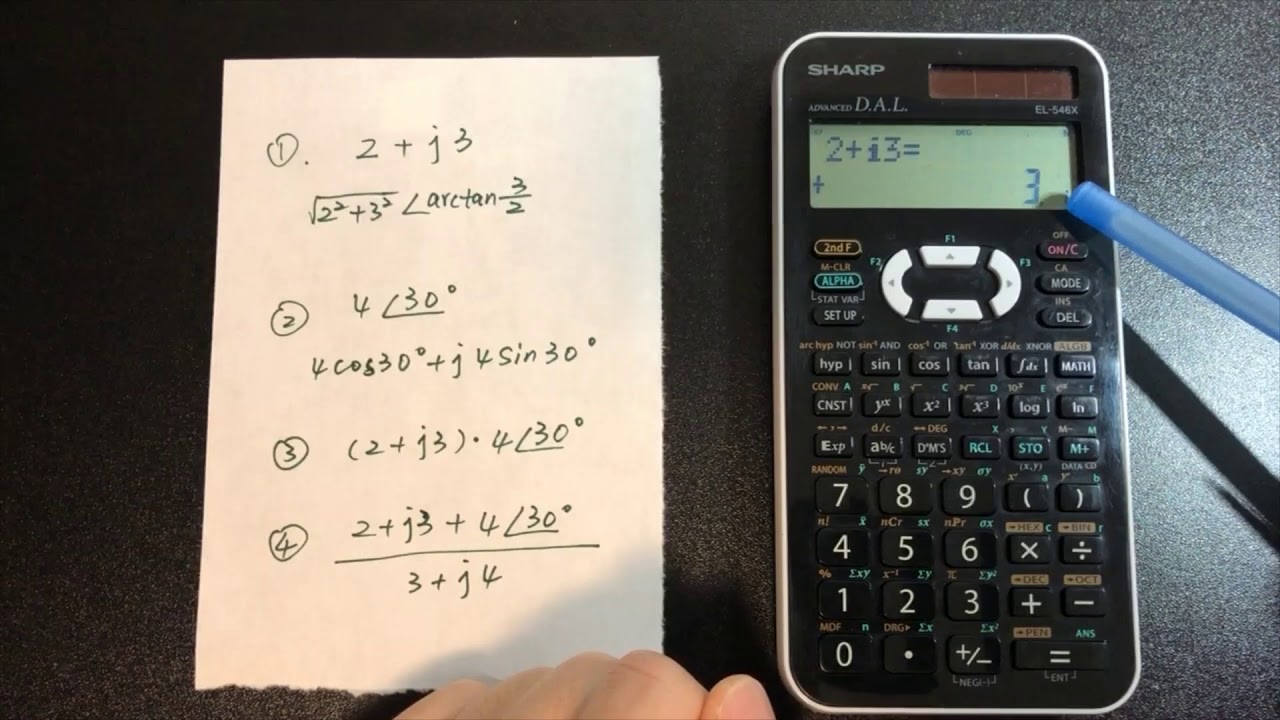 ①. 2 + j3
√2²+3² ∠arctan 3/2
② 4∠30°
4cos30°+j4sin30°
③ (2+j3)·4∠30°
④ 2+j3+4∠30°
3+j4
SHARP
ADVANCED D.A.L.
EL-546X
DEG
2+i3=
+ 3
OFF
2nd F F1 ON/C
M-CLR F2 F3 CA
ALPHA MODE
STAT VAR INS
SET UP F4 DEL
arc hyp NOT sin⁻¹ AND cos⁻¹ OR tan⁻¹ XOR d/dx XNOR ALGB
hyp sin cos tan ∫dx MATH
CONV A B C D 10ˣ E eˣ F
CNST yˣ x² x³ log ln
←,→ d/c ↔DEG X Y M− M
Exp ab/c D°M'S RCL STO M+
RANDOM x̄ →rθ sy →xy σy (x,y) x' a DATA CD y' b
7 8 9 ( )
n! x̄ nCr sx nPr σx →HEX c →BIN r
4 5 6 × ÷
% Σxy x⁻¹ Σy π Σy² →DEC →OCT
1 2 3 + −
MDF n DRG▸ Σx Σx² →PEN ANS
0 • +/− =
NEG(-) ENT